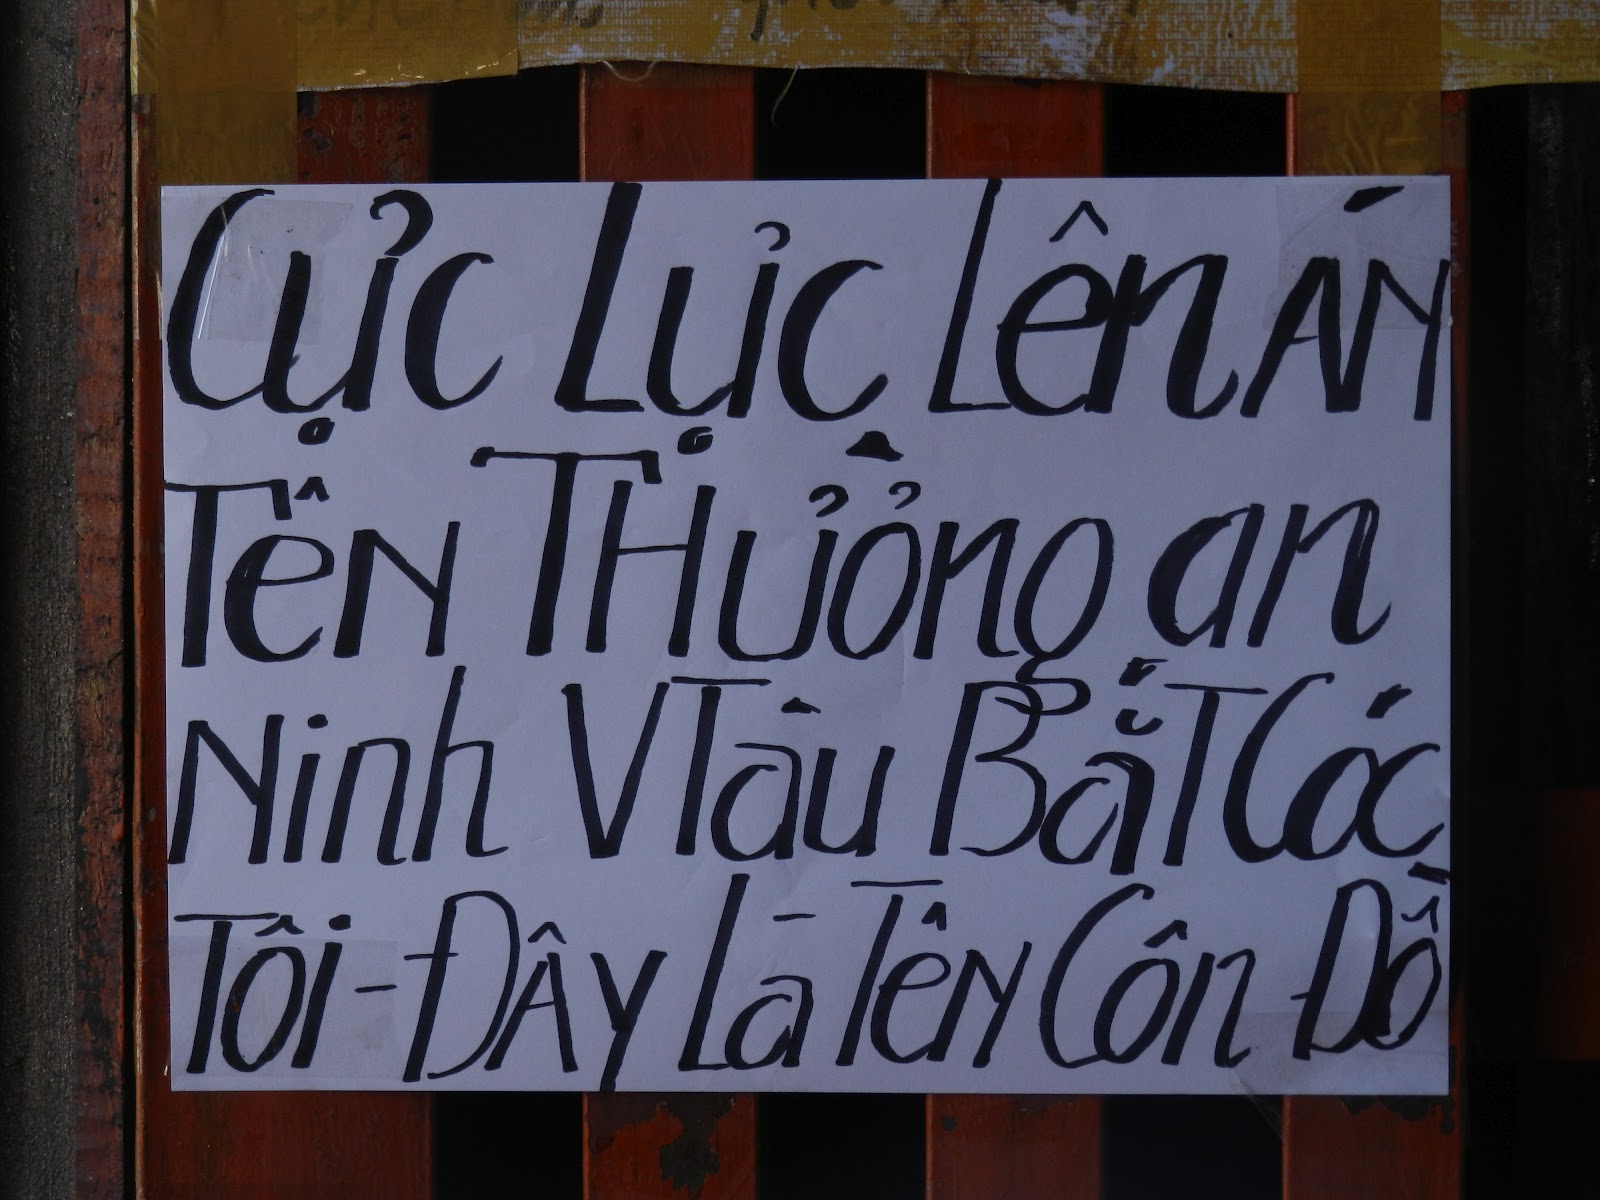 Cực Lực Lên ÁN
TÊN THƯỢNG an
Ninh VTâu BắT Cóc
Tôi - ĐÂY Là TêN Côn Đồ